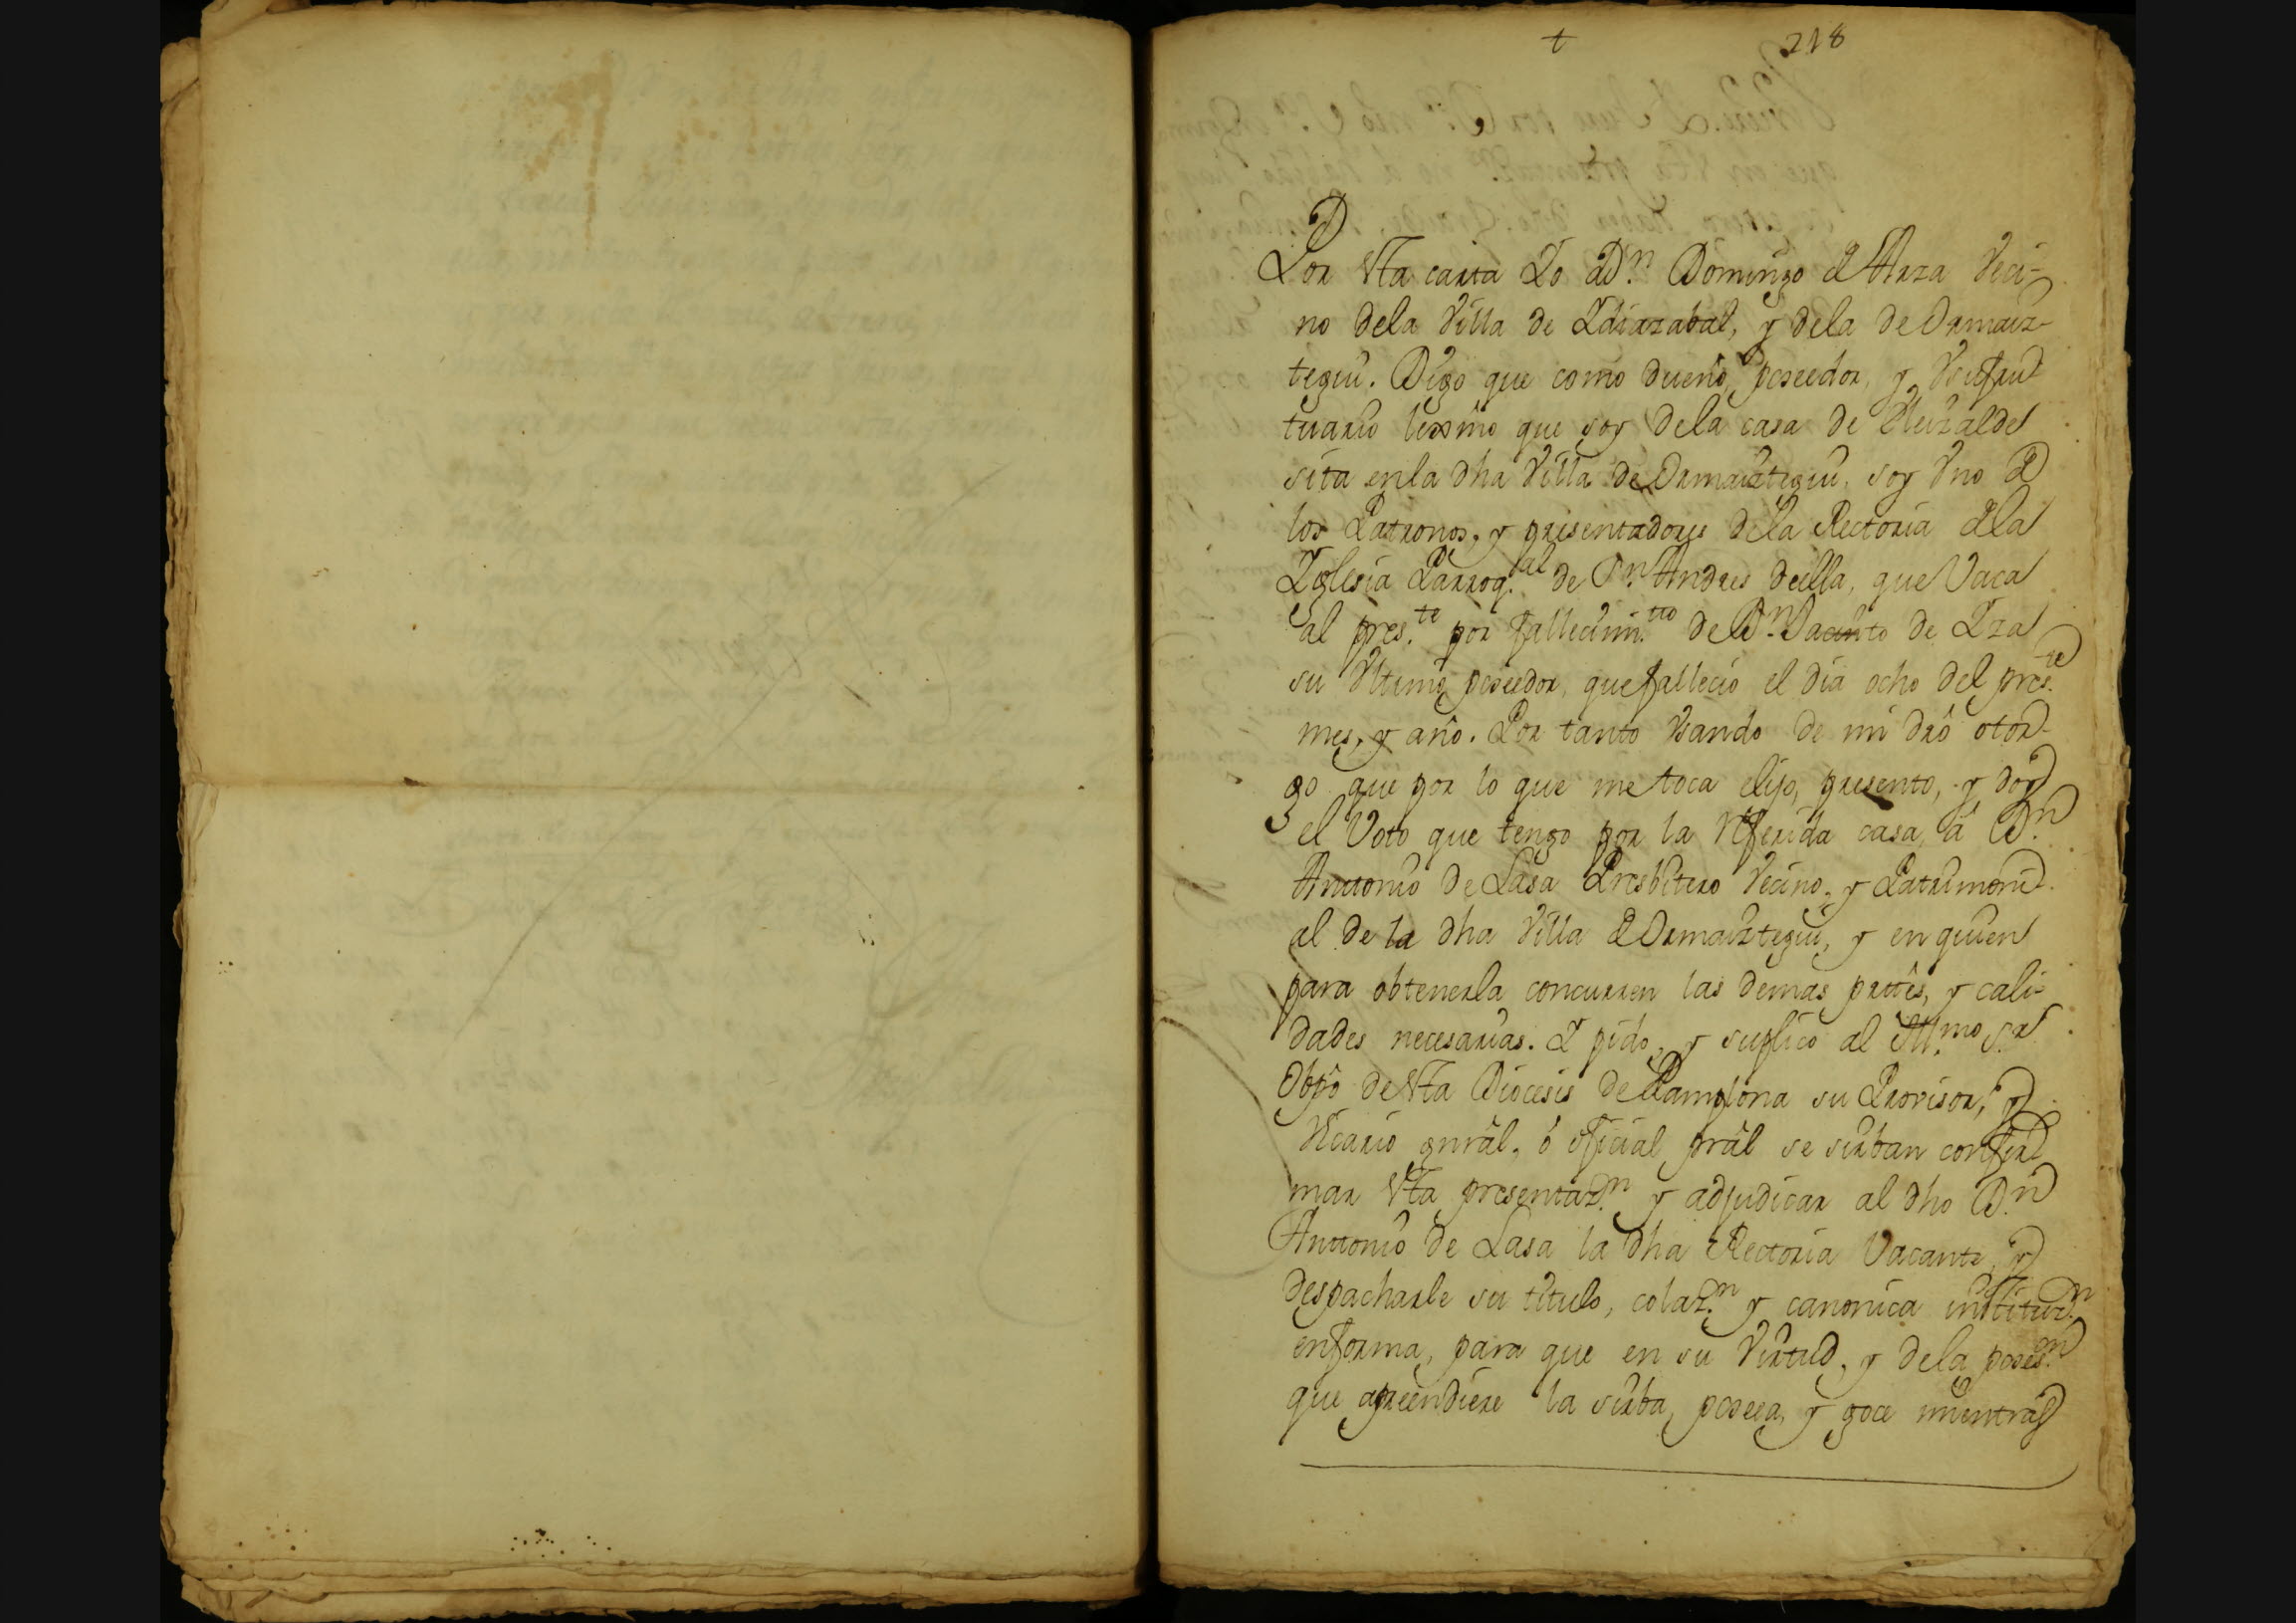 t 218
Por esta carta Yo Dn. Domingo de Arza Veci-
no dela Villa de Ydiazabal, y dela de Ormaiz-
tegui. Digo que como dueño, poseedor, y Usufru-
tuario lexmo que soy dela casa de
sita enla dha Villa de Ormaiztegui, soy Uno de
los Patronos, y presentadores dela Rectoria dela
Yglesia Parroq.al de Sn. Andres deella, que Vaca
al pres.te por fallecim.to de Dn. Jacinto de Yza
su Ultimo poseedor, que fallecio el dia ocho del pres.te
mes, y año. Por tanto Usando de mi drô otor-
go que por lo que me toca elijo, presento, y doy
el Voto que tengo por la referida casa, á Dn.
Anttonio de Lasa Presbitero Vecino, y Patrimoni-
al de la dha Villa de Ormaiztegui, y en quien
para obtenerla concurren las demas prttês, y cali-
dades necesarias. Y pido, y suplico al Ill.mo S.r
Obpô de esta Diocesis de Pamplona su Provisor, y
Vicario gnrâl, ó oficial prâl se sirban confir-
mar esta presentaz.n y adjudicar al dho Dn.
Anttonio de Lasa la dha Rectoria Vacante, y
despacharle su titulo, colaz.n y canonica instituz.n
enforma, para que en su Virtud, y dela poses.n
que apreendiere la sirba, posea, y goce mientras